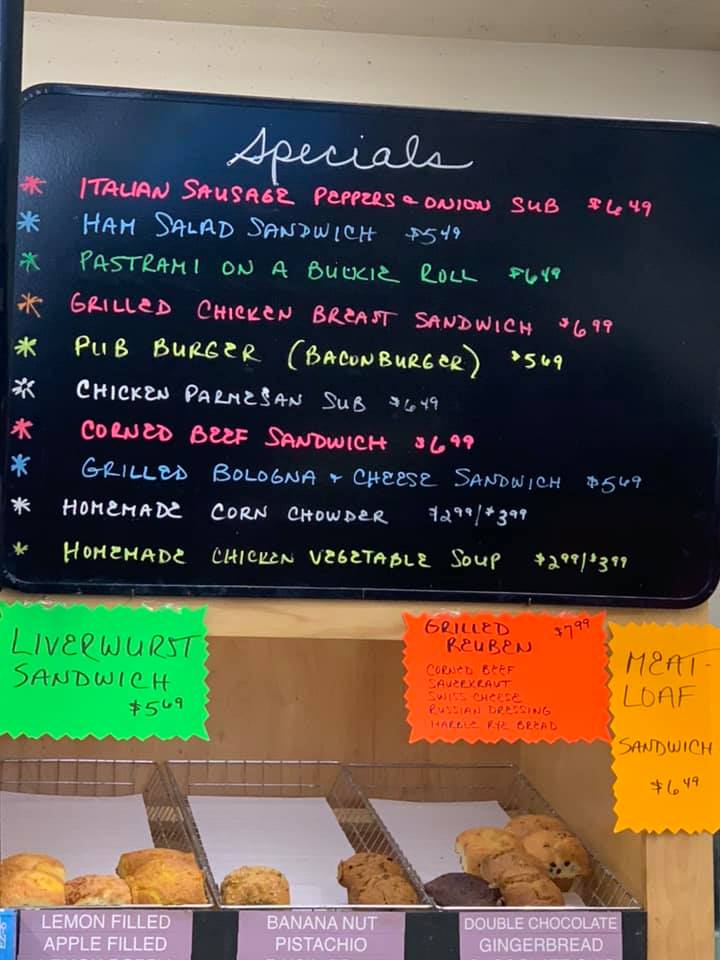 Specials
* ITALIAN SAUSAGE PEPPERS & ONION SUB $6.49
* HAM SALAD SANDWICH $5.49
* PASTRAMI ON A BULKIE ROLL $6.49
* GRILLED CHICKEN BREAST SANDWICH $6.99
* PUB BURGER (BACONBURGER) $5.69
* CHICKEN PARMESAN SUB $6.49
* CORNED BEEF SANDWICH $6.99
* GRILLED BOLOGNA & CHEESE SANDWICH $5.69
* HOMEMADE CORN CHOWDER $2.99/$3.99
* HOMEMADE CHICKEN VEGETABLE SOUP $2.99/$3.99
LIVERWURST
SANDWICH
$5.69
GRILLED $7.99
REUBEN
CORNED BEEF
SAUERKRAUT
SWISS CHEESE
RUSSIAN DRESSING
MARBLE RYE BREAD
MEAT-
LOAF
SANDWICH
$6.49
LEMON FILLED
APPLE FILLED
BANANA NUT
PISTACHIO
DOUBLE CHOCOLATE
GINGERBREAD